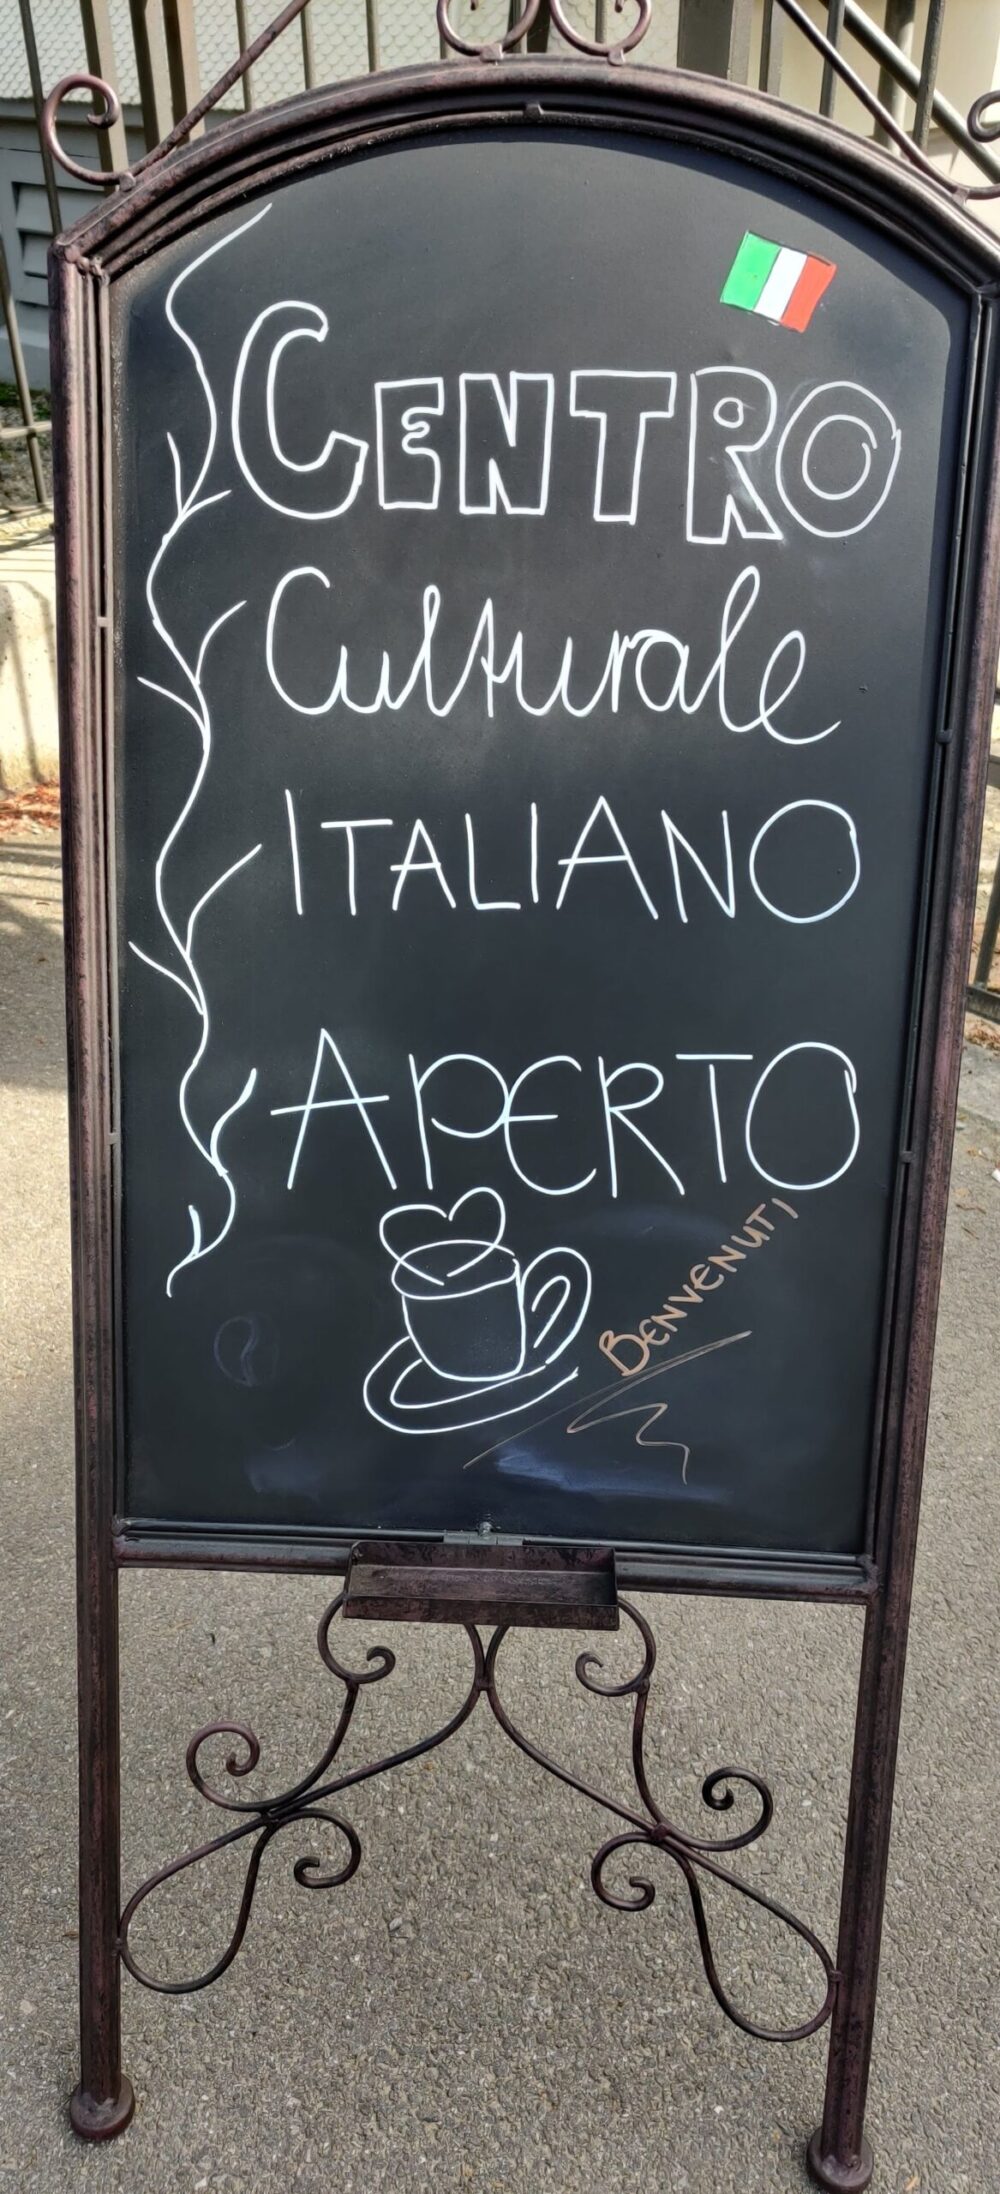 CENTRO
Culturale
ITALIANO
APERTO
BENVENUTI